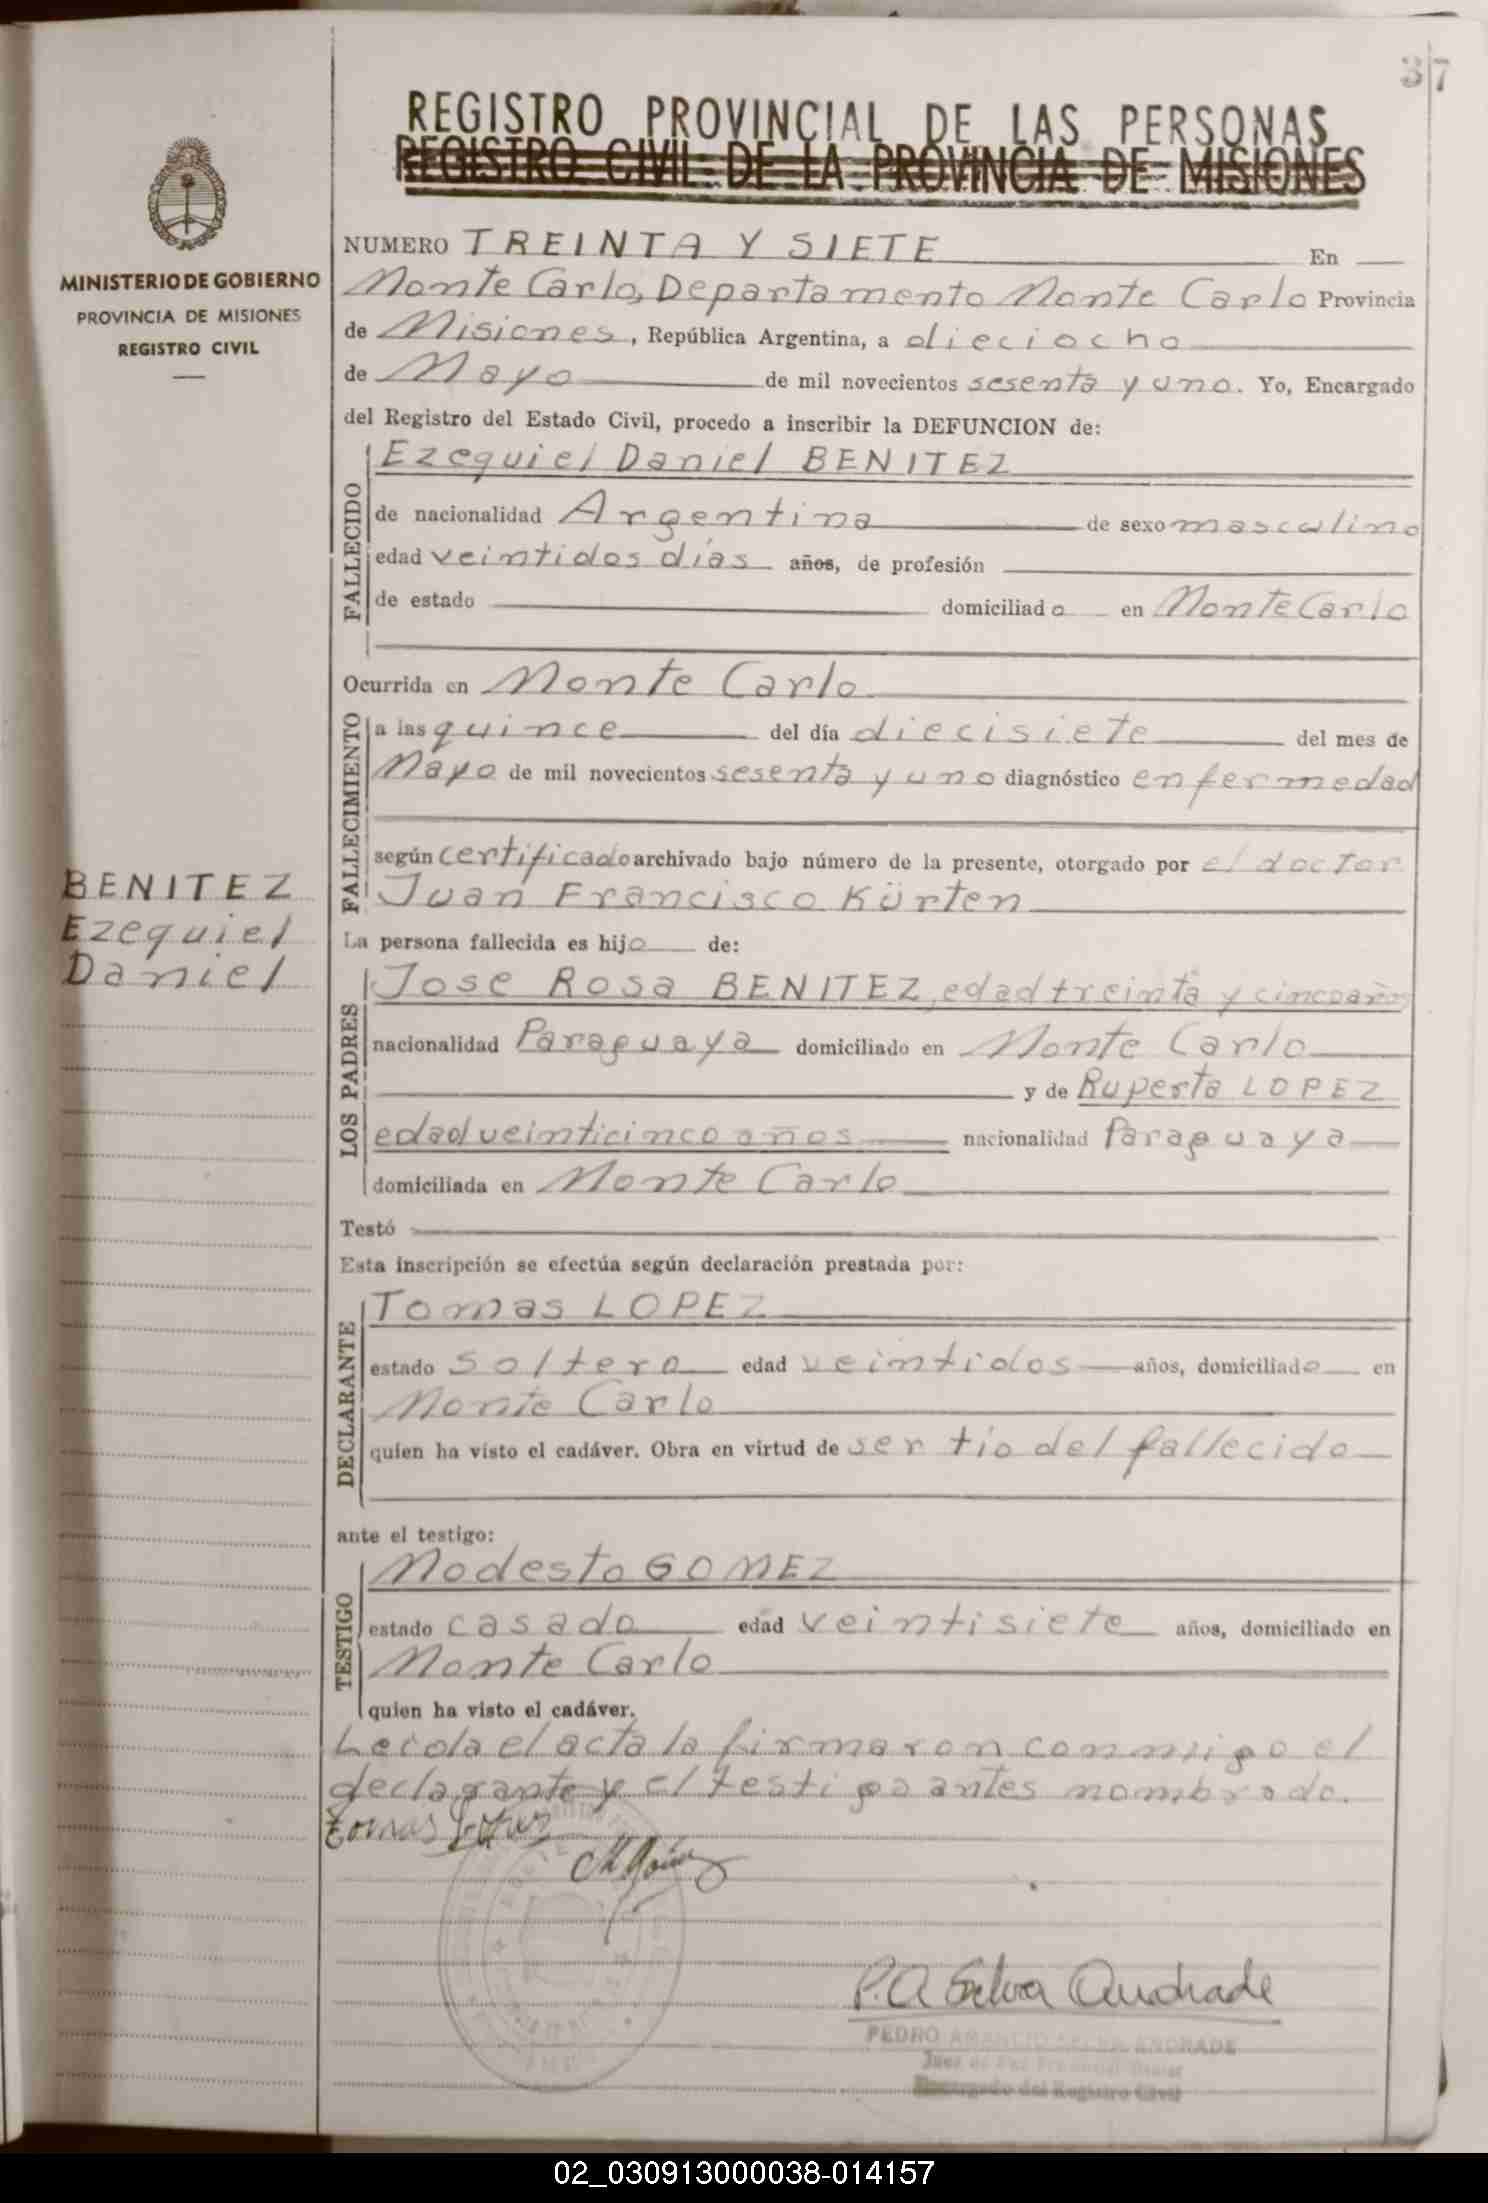 37
REGISTRO PROVINCIAL DE LAS PERSONAS
REGISTRO CIVIL DE LA PROVINCIA DE MISIONES
MINISTERIO DE GOBIERNO
PROVINCIA DE MISIONES
REGISTRO CIVIL
NUMERO TREINTA Y SIETE En
Monte Carlo, Departamento Monte Carlo Provincia
de Misiones, República Argentina, a dieciocho
de Mayo de mil novecientos sesenta y uno. Yo, Encargado
del Registro del Estado Civil, procedo a inscribir la DEFUNCION de:
FALLECIDO
Ezequiel Daniel BENITEZ
de nacionalidad Argentina de sexo masculino
edad veintidos días años, de profesión
de estado domiciliado en Monte Carlo
Ocurrida en Monte Carlo
FALLECIMIENTO
a las quince del día diecisiete del mes de
Mayo de mil novecientos sesenta y uno diagnóstico enfermedad
según certificado archivado bajo número de la presente, otorgado por el doctor
Juan Francisco Kürten
BENITEZ
Ezequiel
Daniel
La persona fallecida es hijo de:
LOS PADRES
Jose Rosa BENITEZ, edad treinta y cinco años
nacionalidad Paraguaya domiciliado en Monte Carlo
y de Ruperta LOPEZ
edad veinticinco años nacionalidad Paraguaya
domiciliada en Monte Carlo
Testó
Esta inscripción se efectúa según declaración prestada por:
DECLARANTE
Tomas LOPEZ
estado soltero edad veintidos años, domiciliado en
Monte Carlo
quien ha visto el cadáver. Obra en virtud de ser tio del fallecido
ante el testigo:
TESTIGO
Modesto GOMEZ
estado casado edad veintisiete años, domiciliado en
Monte Carlo
quien ha visto el cadáver.
Leida el acta la firmaron conmigo el
declarante y el testigo antes nombrado.
tomas Lopez
M Gómez
P. A Silva Andrade
PEDRO AMANCIO SILVA ANDRADE
Encargado del Registro Civil
02_030913000038-014157